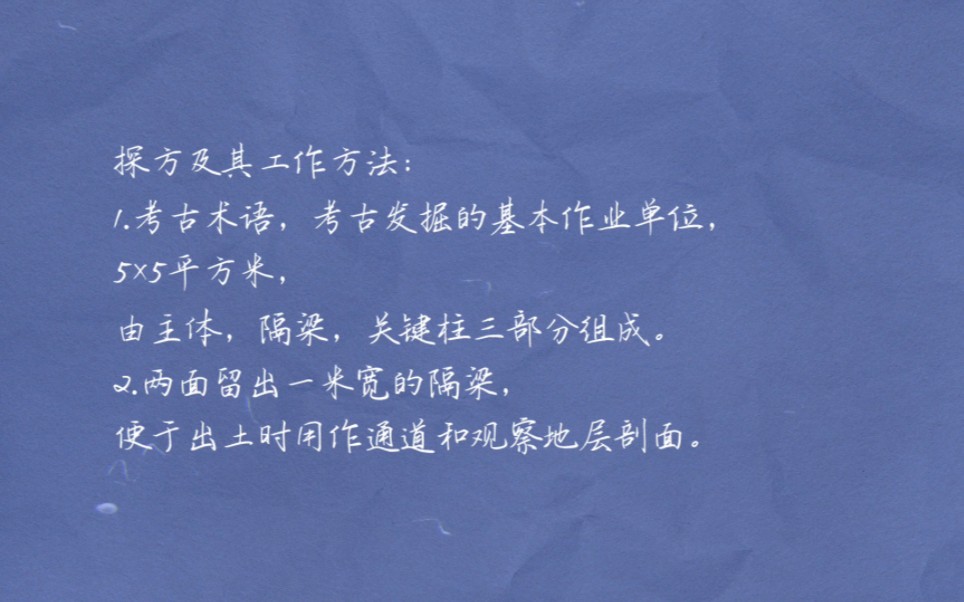 探方及其工作方法：
1.考古术语，考古发掘的基本作业单位，
5×5平方米，
由主体，隔梁，关键柱三部分组成。
2.两面留出一米宽的隔梁，
便于出土时用作通道和观察地层剖面。